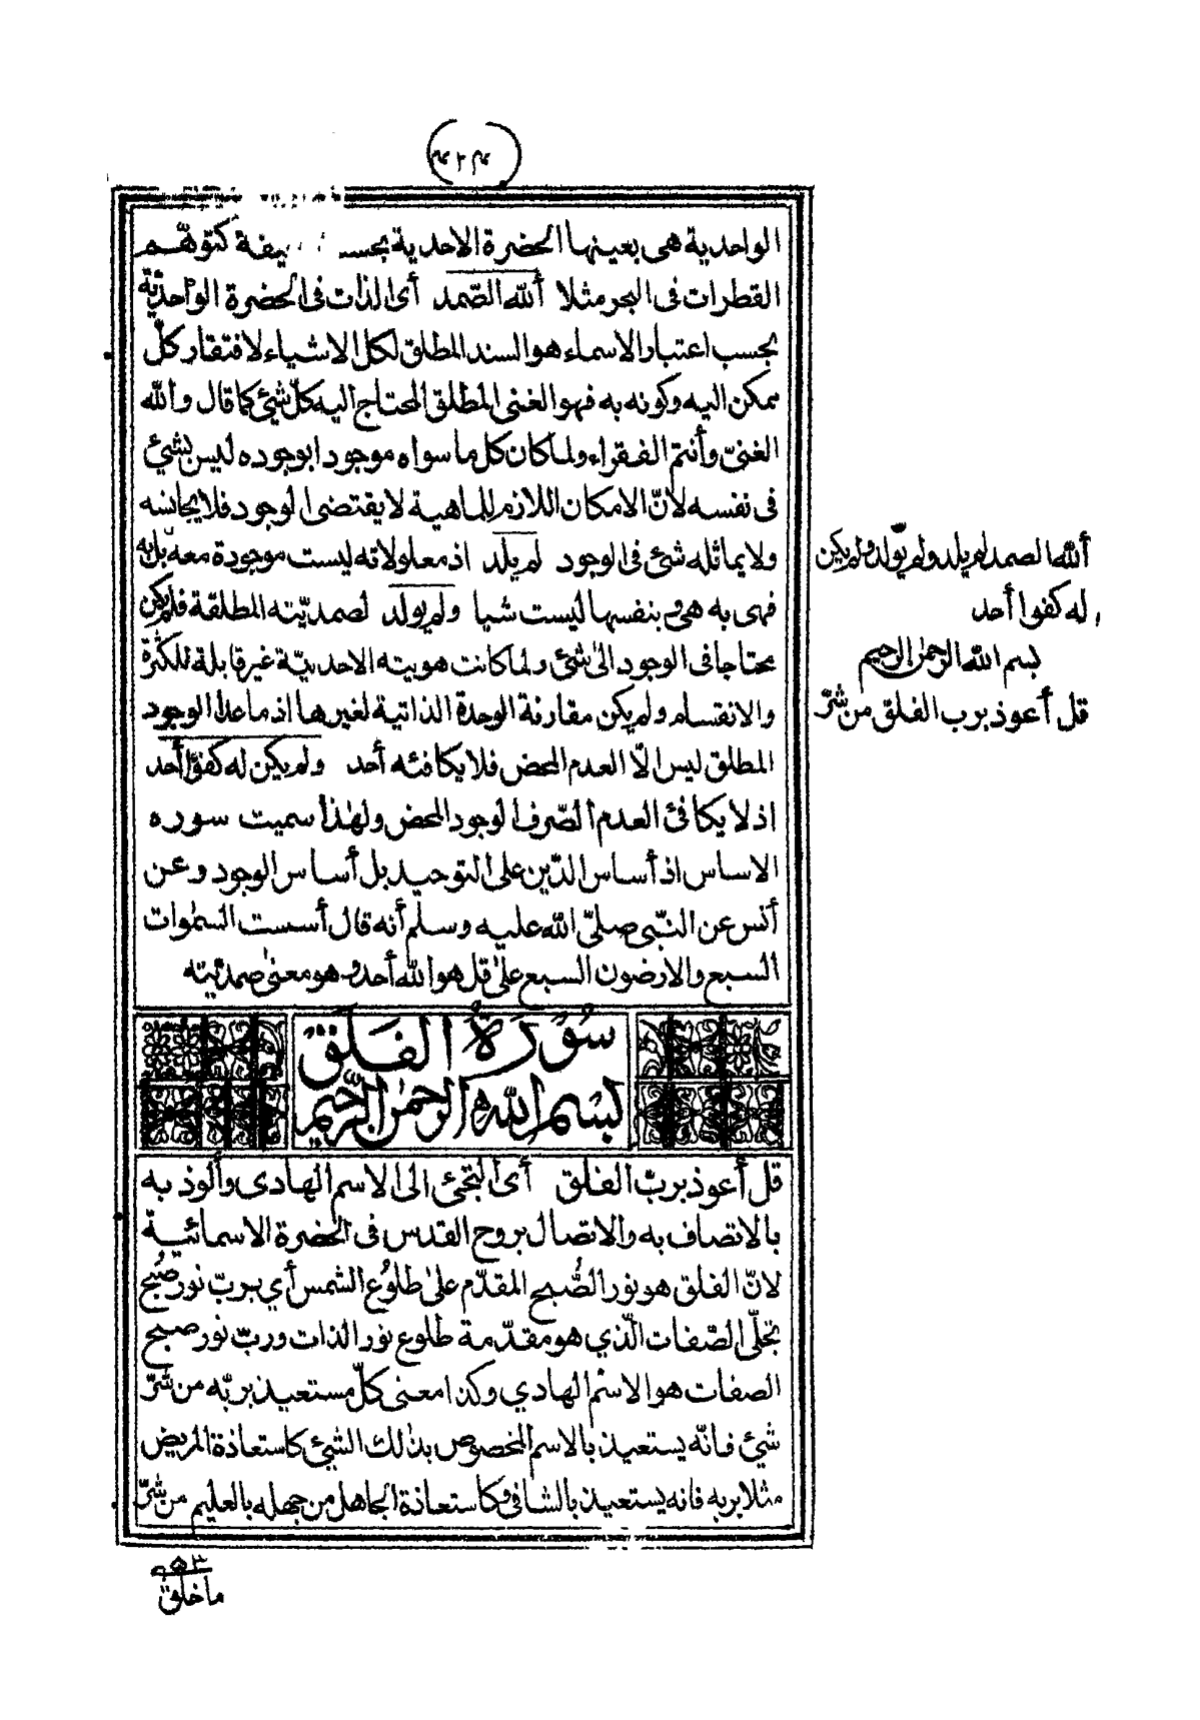 الواحدية هى بعينها الحضرة الاحدية بحسب كتوهّم
القطرات فى البحر مثلا أللّه الصّمد أى الذات فى الحضرة الواحديّة
بحسب اعتبار الاسماء هو السند المطلق لكل الاشياء لافتقار كلّ
ممكن اليه وكونه به فهو الغنى المطلق المحتاج اليه كلّ شئ كما قال والله
الغنىّ وأنتم الفقراء ولما كان كل ما سواه موجودا بوجوده ليس بشئ
فى نفسه لانّ الامكان اللازم للماهية لا يقتضى الوجود فلا يجانسه
ولا يماثله شئ فى الوجود لم يلد اذ معلولاته ليست موجودة معه بل به
فهى به هى وبنفسها ليست شيأ ولم يولد لصمديّته المطلقة فلم يكن
محتاجا فى الوجود الى شئ ولما كانت هويته الاحديّة غير قابلة للكثرة
والانقسام ولم يكن مقارنة الوحدة الذاتية لغيرها اذ ما عدا الوجود
المطلق ليس الّا العدم المحض فلا يكافئه أحد ولم يكن له كفوًا أحد
اذ لا يكافئ العدم الصّرف الوجود المحض ولهذا سميت سوره
الاساس اذ أساس الدّين على التوحيد بل أساس الوجود وعن
أنس عن النّبى صلىّ الله عليه وسلم أنه قال أسست السمٰوات
السبع والارضون السبع علىٰ قل هو الله أحد وهو معنىٰ صمديّته
سُوْرَةُ الفَلَقِ
بسم الله الرحمٰن الرّحيم
قل أعوذ بربّ الفلق أى التجئ الى الاسم الهادى وألوذ به
بالاتصاف به والاتصال بروح القدس فى الحضرة الاسمائية
لانّ الفلق هو نور الصُّبح المقدّم علىٰ طلوُع الشمس أي بربّ نور صُبح
تجلّى الصّفات الّذي هو مقدّمة طلوع نور الذات وربّ نور صبح
الصفات هو الاسْم الهادي وكذا معنى كلّ مستعيذ بربّه من شرّ
شئ فانّه يستعيذ بالاسم المخصوص بذٰلك الشئ كاستعاذة المريض
مثلا بربه فانه يستعيذ بالشافى وكاستعاذة الجاهل من جهله بالعليم من شرّ
ما خلق
أللّه الصمد لم يلد ولم يّولد ولم يكن
له كفوا أحد
بسم الله الرحمٰن الرحيم
قل أعوذ برب الفلق من شرّ